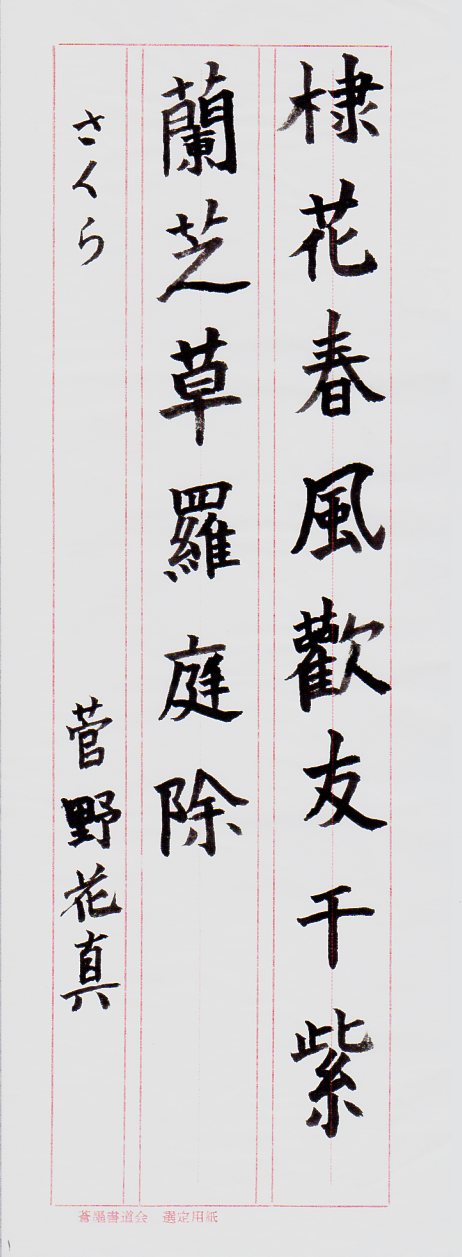 棣花春風歡友干紫
蘭芝草羅庭除
さくら 菅野花真
選定用紙